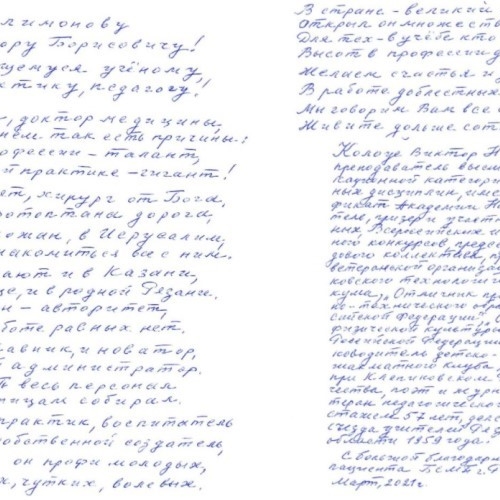 лимонову
ору Борисовичу!
щемуся учёному,
ктику, педагогу!
, доктор медицины,
нём так есть причины:
офессии - талант,
й практике - гигант!
ет, хирург от Бога,
ротоптана дорога,
южан, в Иерусалим,
накомиться все с ним.
ают и в Казани,
це, и в родной Рязани.
н - авторитет,
боте равных нет.
авник, новатор,
й администратор.
ь весь персонал
тицам собирал.
практик, воспитатель
обственной создатель,
он профи молодых,
х, чутких, волевых.
В стране - великий
Открыл он множеств
Для тех - в учёбе кто
Высот в профессии д
Желаем счастья и з
В работе доблестных
Мы говорим Вам все
Живите дольше сот
Колозе Виктор Н
преподаватель высш
кационной категори
ных дисциплин, име
фикат Академии На
теле, призёр и участ
ных, Всероссийских и
ного конкурсов, предсе
зового коллектива, пр
ветеранской организа
ковского технологич
кума, „Отличник пр
но-технического обра
сийской Федерации", О
физической культуры
Российской Федерации
ководитель детско-
шахматного клуба,
при Клепиковском
чества, поэт и журн
теран педагогическог
стажем 57 лет, деле
съезда учителей Ряз
области 1959 года.
С большой благодарн
пациента БСМП г. Р
Март, 2021г.